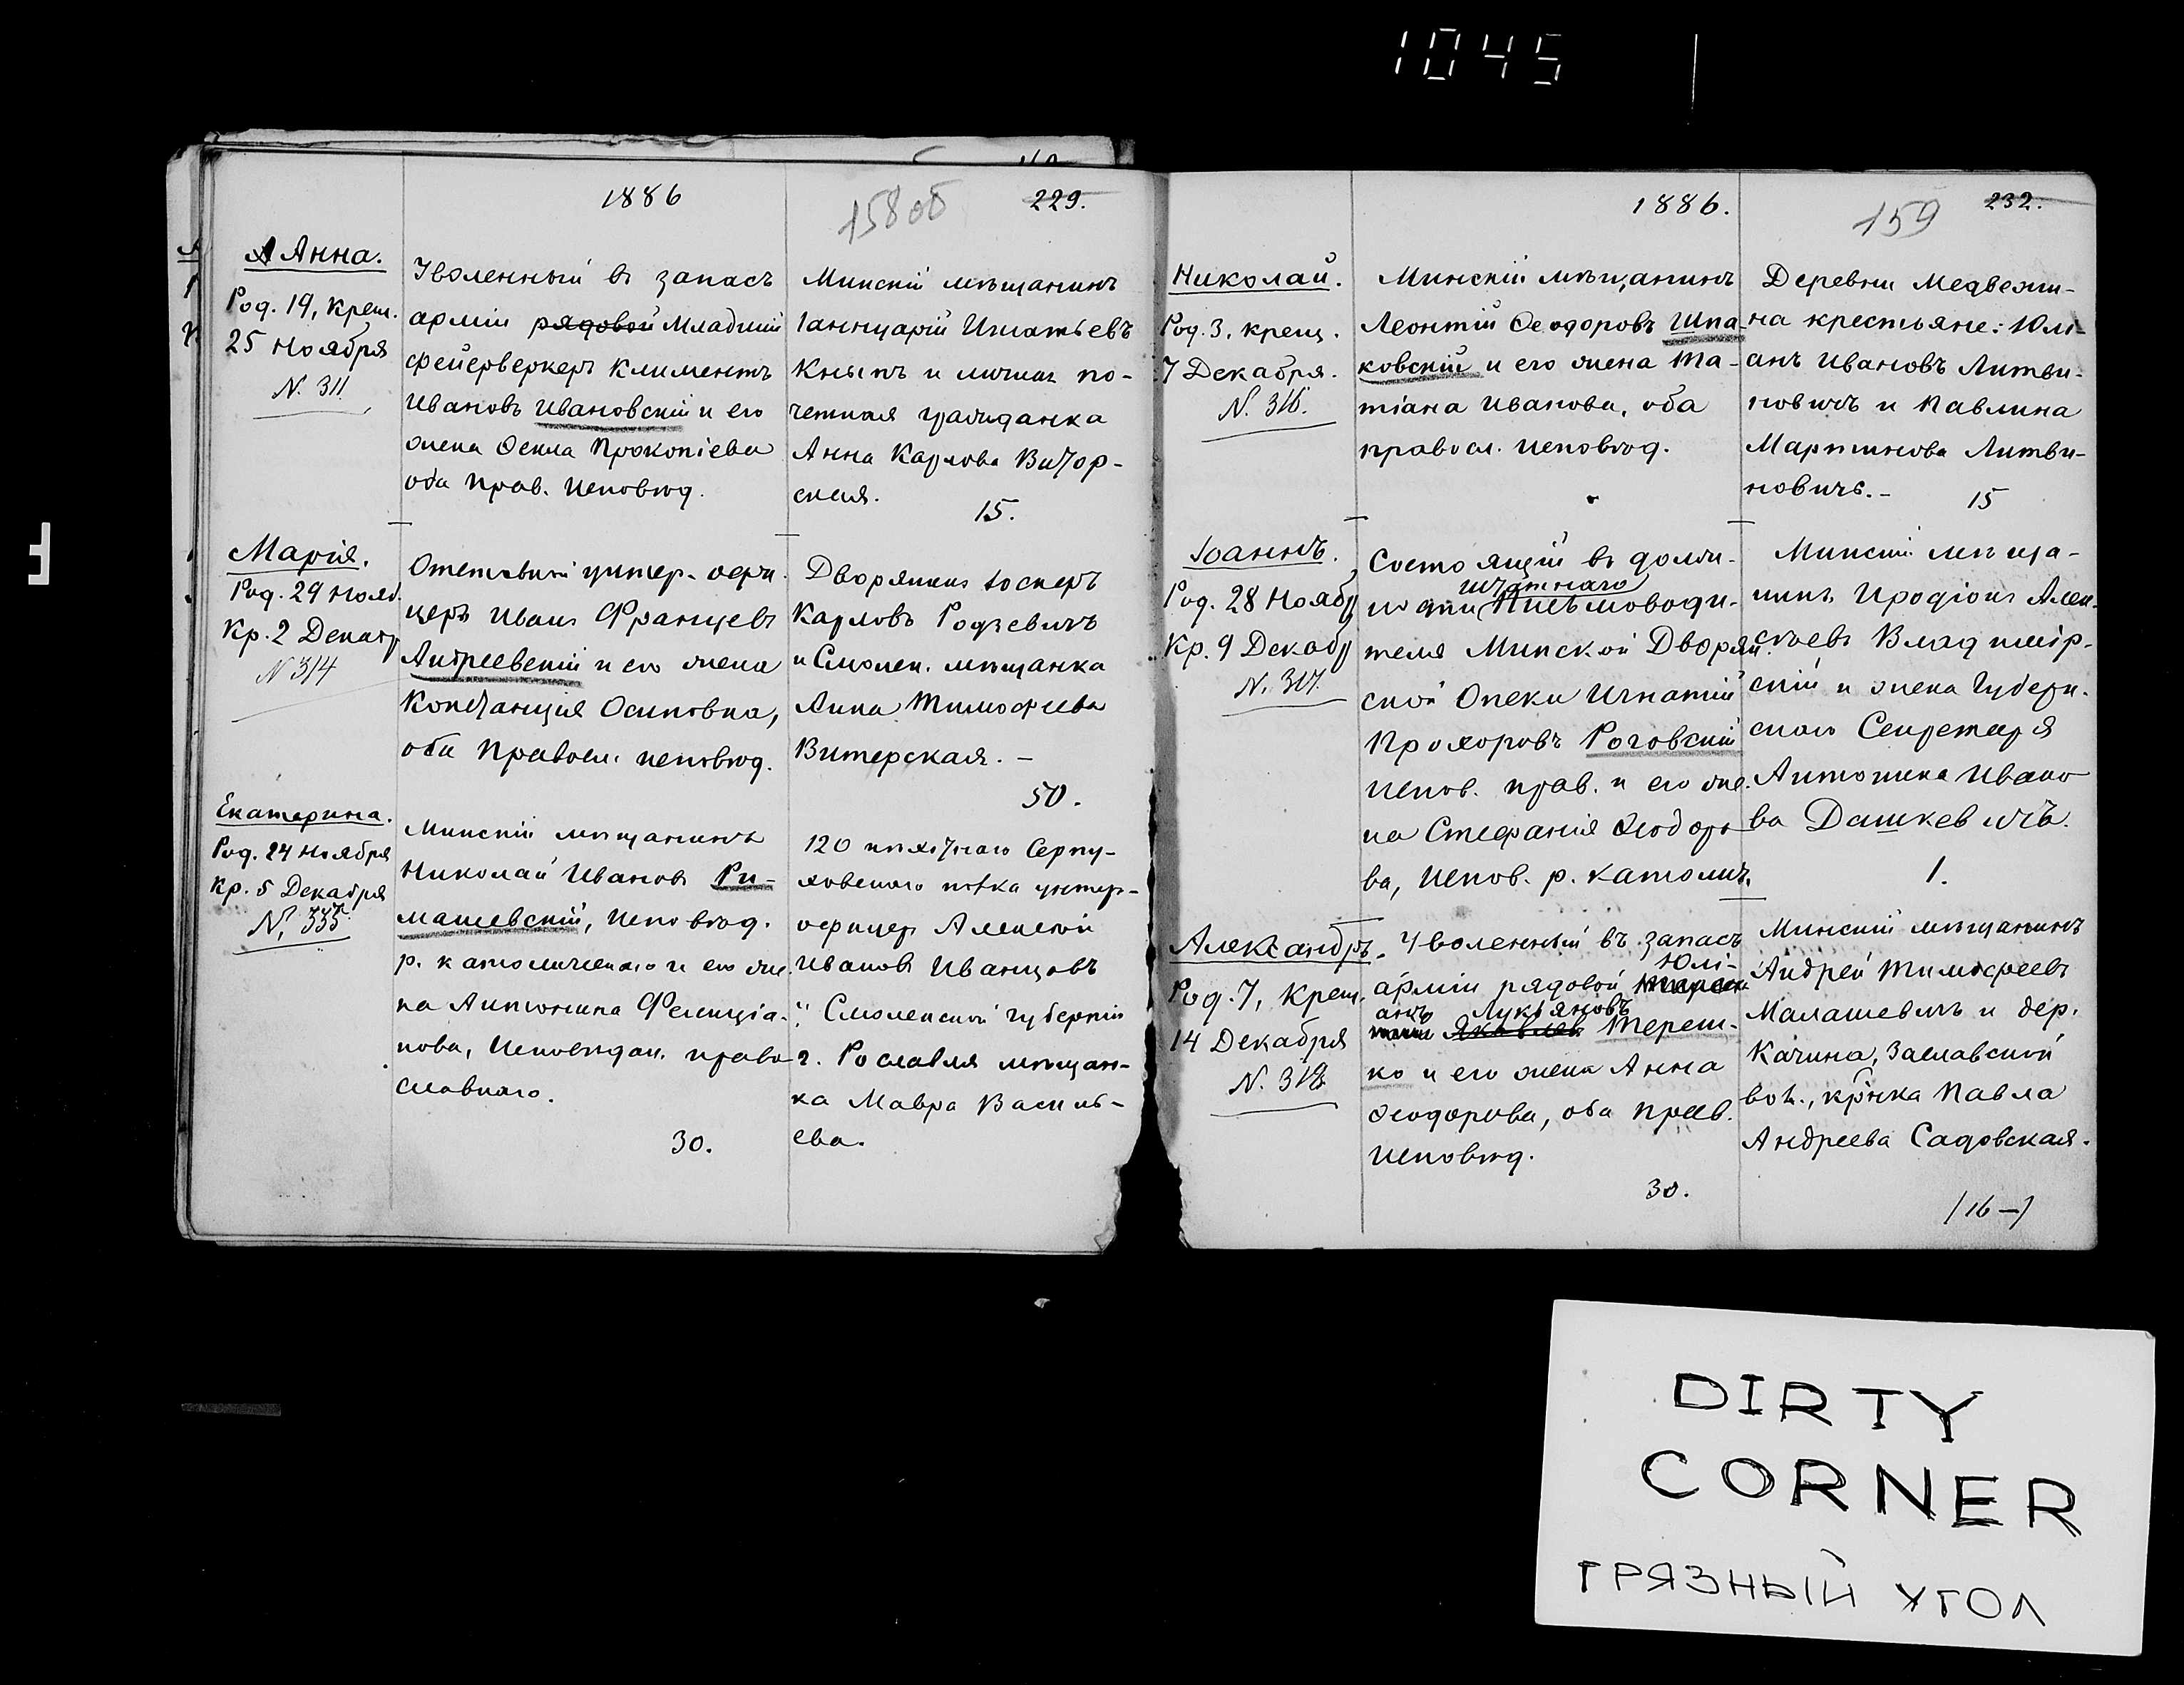 1045
1886
158 об
229.
А Анна.
Род. 19, Крещ.
25 Ноября
N. 311
Уволенный въ запасъ
арміи рядовой Младшій
фейерверкеръ Климентъ
Ивановъ Ивановскій и его
жена Ѳекла Прокопіева
оба Прав. исповѣд.
Минскій мѣщанинъ
Іаннуарій Игнатьевъ
Кныпъ и личная по-
четная гражданка
Анна Карлова
ская.
15.
Марія.
Род. 29 Нояб.
Кр. 2 Декабр
N 314
Отставный унтер-офи
церъ Иванъ Францевъ
Андреевскій и его жена
Констанція Осиповна,
оба Правосл. исповѣд.
Дворянинъ Іосифъ
Карловъ Родзевичъ
и Смолен. мѣщанка
Анна Тимофеева
Витерская. –
50.
Екатерина.
Род. 24 Ноября
Кр. 5 Декабря
N.
Минскій мѣщанинъ
Николай Ивановъ Ри-
машевскій, исповѣд.
р. католическаго и его же-
на Антонина Фелиціа-
нова, исповѣдан. право
славнаго.
30.
120 пѣхотнаго Серпу-
ховскаго полка унтер-
офицер Алексѣй
Ивановъ Иванцовъ
и Смоленской губерніи
г. Рославля мѣщан-
ка Мавра Василь-
ева.
1886.
159
232.
Николай.
Род. 3, крещ.
7 Декабря.
N. 316.
Минскій мѣщанинъ
Леонтій Ѳеодоровъ Шпа-
ковскій и его жена Та-
тіана Иванова, оба
правосл. исповѣд.
Деревни Медвежи-
на крестьяне: Юлі
анъ Ивановъ Литви-
новичъ и Павлина
Мартинова Литви-
новичъ. –
15
Іоаннъ.
Род. 28 Ноябр
Кр. 9 Декабр
N. 317.
Состоящій въ долж-
ности штатнаго Письмоводи-
теля Минской Дворян.
ской Опеки Игнатій
Прохоровъ Роговскій
испов. прав. и его же-
на Стефанія Ѳеодоро
ва, испов. р. католич.
Минскій мѣща-
нинъ Иродіонъ Алек-
сѣевъ Владимір-
скій и жена Губерн.
скаго Секретаря
Антонина Ивано
ва Дашкевичъ.
1.
Александръ.
Род. 7, Крещ.
14 Декабря
N. 318
Уволенный въ запасъ
арміи рядовой Юлі-
анъ Лукьяновъ
Яковлев Тереш-
ко и его жена Анна
Ѳеодорова, оба прав.
исповѣд.
30.
Минскій мѣщанинъ
Андрей Тимофеевъ
Малашевичъ и дер.
Качина, Заславской
вол., кр-нка Павла
Андреева Садовская.
/16–/
DIRTY
CORNER
ГРЯЗНЫЙ УГОЛ